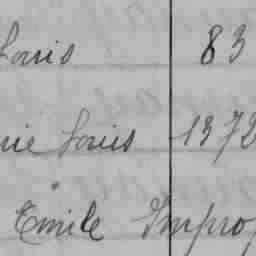 Louis 83
ie Louis 1372
Emile Impro